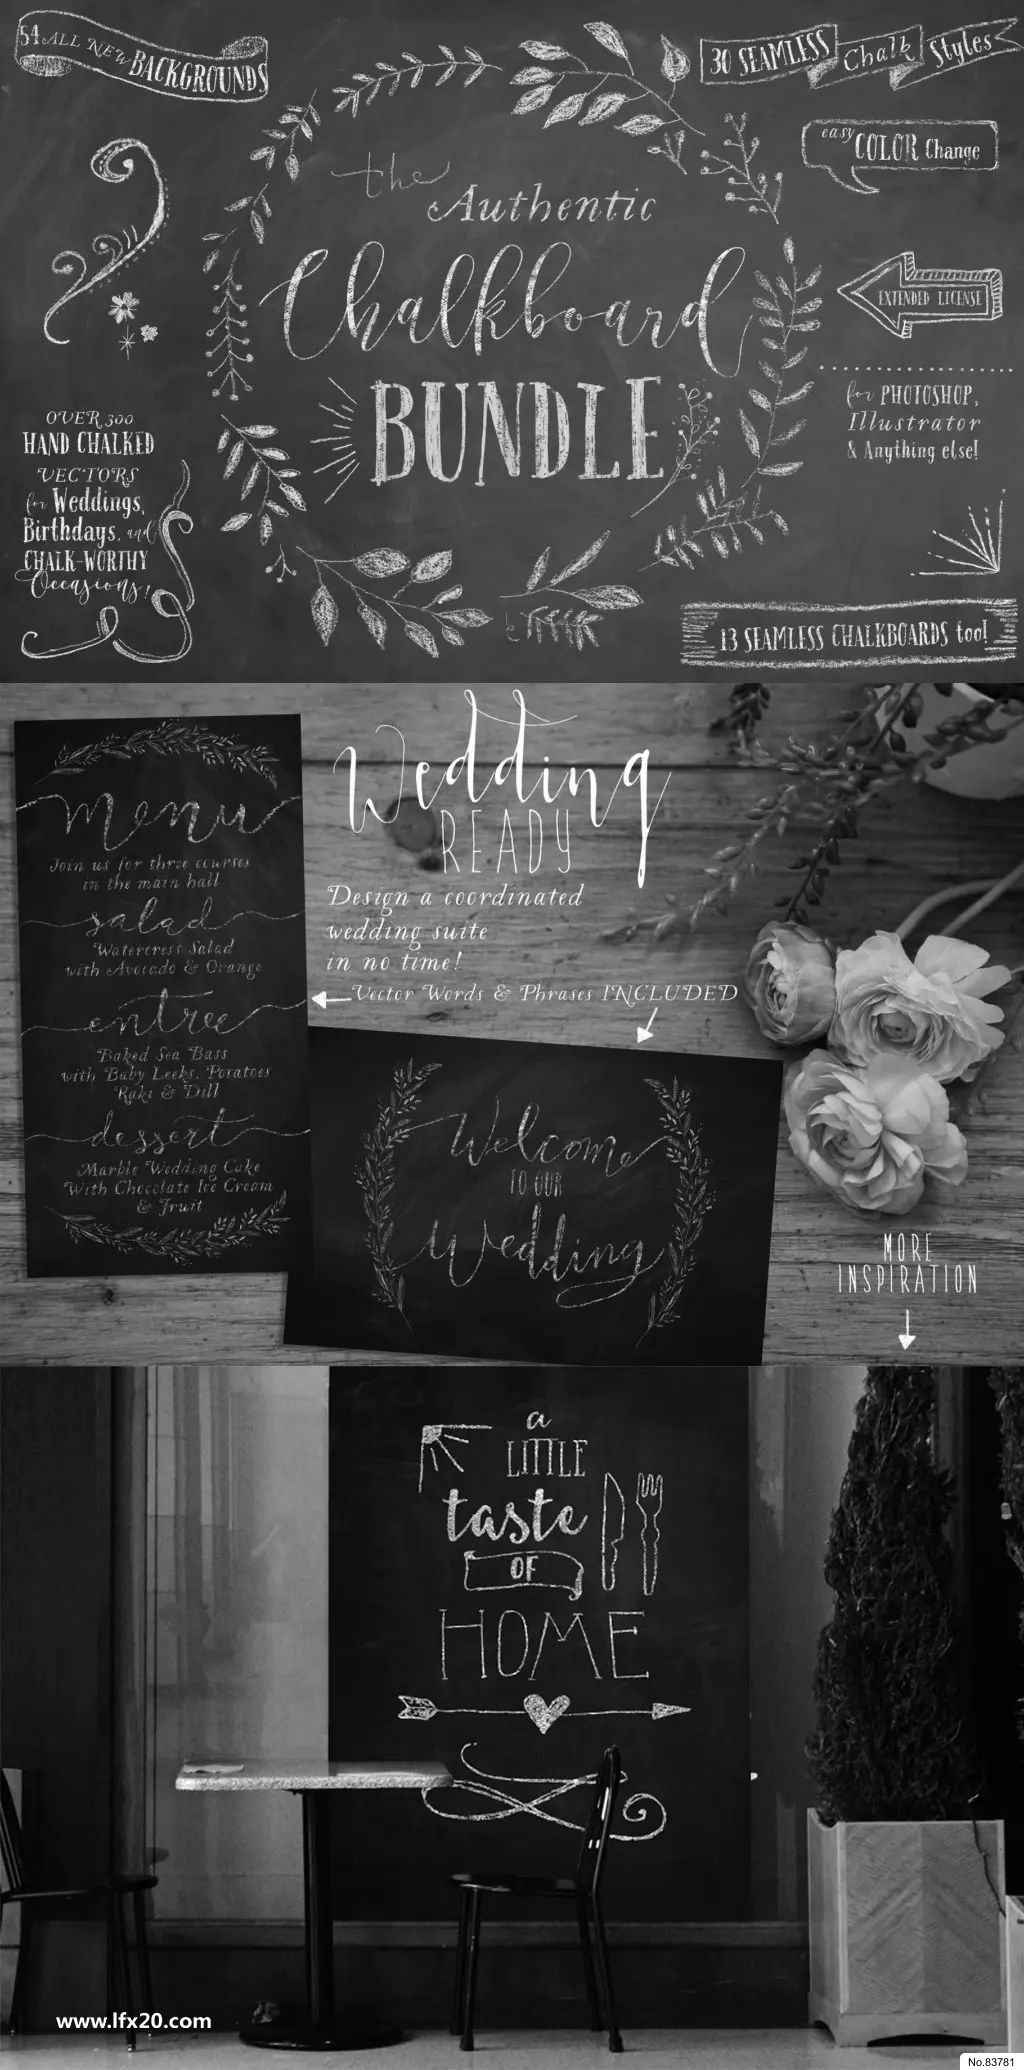 54 ALL NEW BACKGROUNDS
30 SEAMLESS Chalk Styles
easy COLOR Change
the
Authentic
Chalkboard
BUNDLE
EXTENDED LICENSE
for PHOTOSHOP,
Illustrator
& Anything else!
OVER 300
HAND CHALKED
VECTORS
for Weddings,
Birthdays, and
CHALK-WORTHY
Occasions!
13 SEAMLESS CHALKBOARDS too!
menu
Join us for three courses
in the main hall
salad
Watercress Salad
with Avocado & Orange
entree
Baked Sea Bass
with Baby Leeks, Potatoes
Raki & Dill
dessert
Marble Wedding Cake
With Chocolate Ice Cream
& Fruit
Wedding
READY
Design a coordinated
wedding suite
in no time!
Vector Words & Phrases INCLUDED
Welcome
TO OUR
Wedding
MORE
INSPIRATION
a
LITTLE
taste
OF
HOME
www.lfx20.com
No.83781